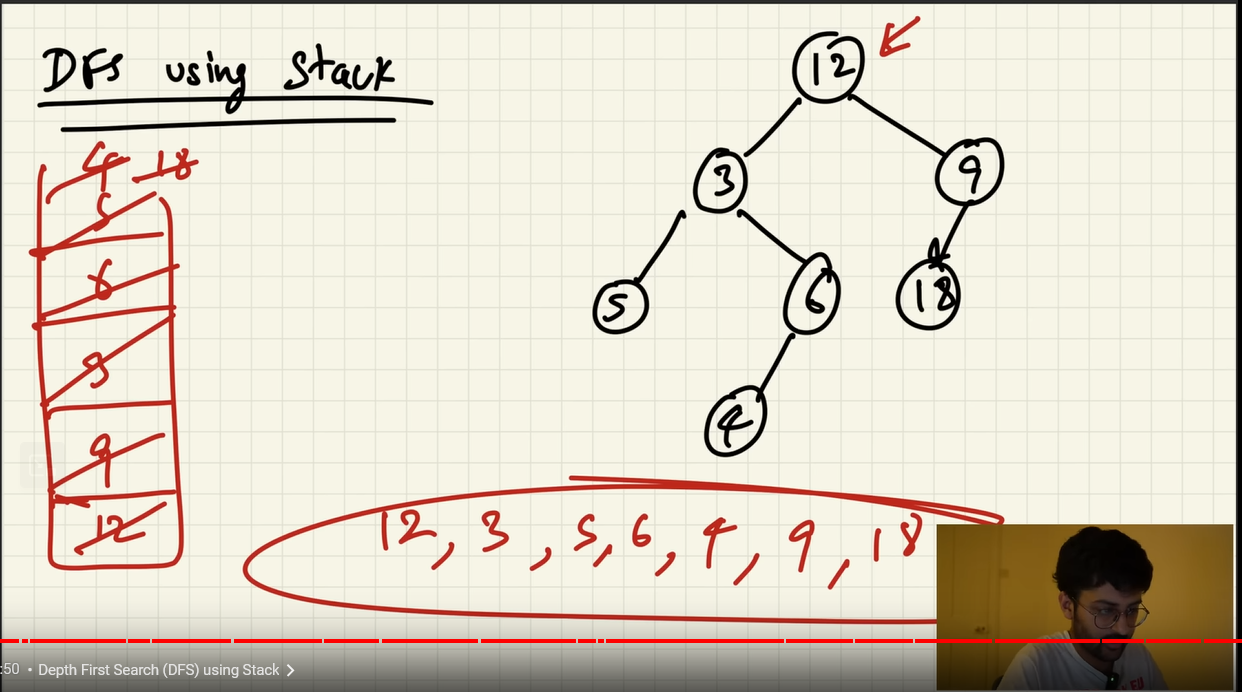 DFS using Stack
4 18
5
6
3
9
12
12
3
9
5
6
18
4
12, 3, 5, 6, 4, 9, 18
:50 • Depth First Search (DFS) using Stack >